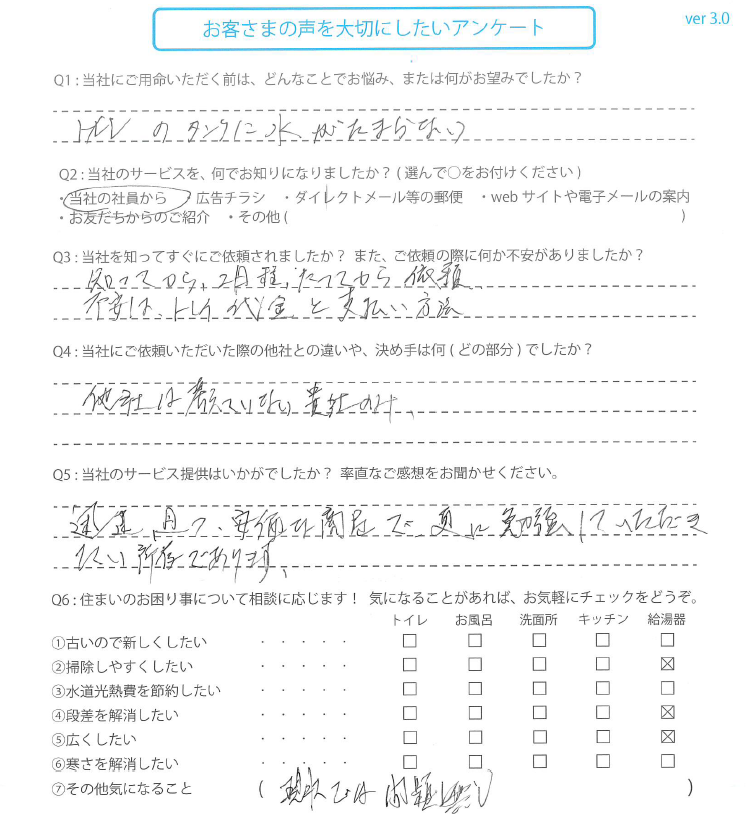 お客さまの声を大切にしたいアンケート
ver 3.0
Q1 : 当社にご用命いただく前は、どんなことでお悩み、または何がお望みでしたか？
のタンクに水がたまらない
Q2 : 当社のサービスを、何でお知りになりましたか？( 選んで〇をお付けください )
・当社の社員から ・広告チラシ ・ダイレクトメール等の郵便 ・web サイトや電子メールの案内
・お友だちからのご紹介 ・その他 ( )
Q3 : 当社を知ってすぐにご依頼されましたか？ また、ご依頼の際に何か不安がありましたか？
知ってから、2月程、たってから依頼、
不安は、トイレ代金と支払い方法
Q4 : 当社にご依頼いただいた際の他社との違いや、決め手は何 ( どの部分 ) でしたか？
他社は考えていない 貴社のみ、
Q5 : 当社のサービス提供はいかがでしたか？ 率直なご感想をお聞かせください。
迅速、且つ、安価な商品で、更に勉強していただき
たい所存であります、
Q6 : 住まいのお困り事について相談に応じます！ 気になることがあれば、お気軽にチェックをどうぞ。
トイレ お風呂 洗面所 キッチン 給湯器
①古いので新しくしたい ・・・・・ □ □ □ □ □
②掃除しやすくしたい ・・・・・ □ □ □ □ ☒
③水道光熱費を節約したい ・・・・・ □ □ □ □ □
④段差を解消したい ・・・・・ □ □ □ □ ☒
⑤広くしたい ・・・・・ □ □ □ □ ☒
⑥寒さを解消したい ・・・・・ □ □ □ □ □
⑦その他気になること ( 現状では 問題無し )